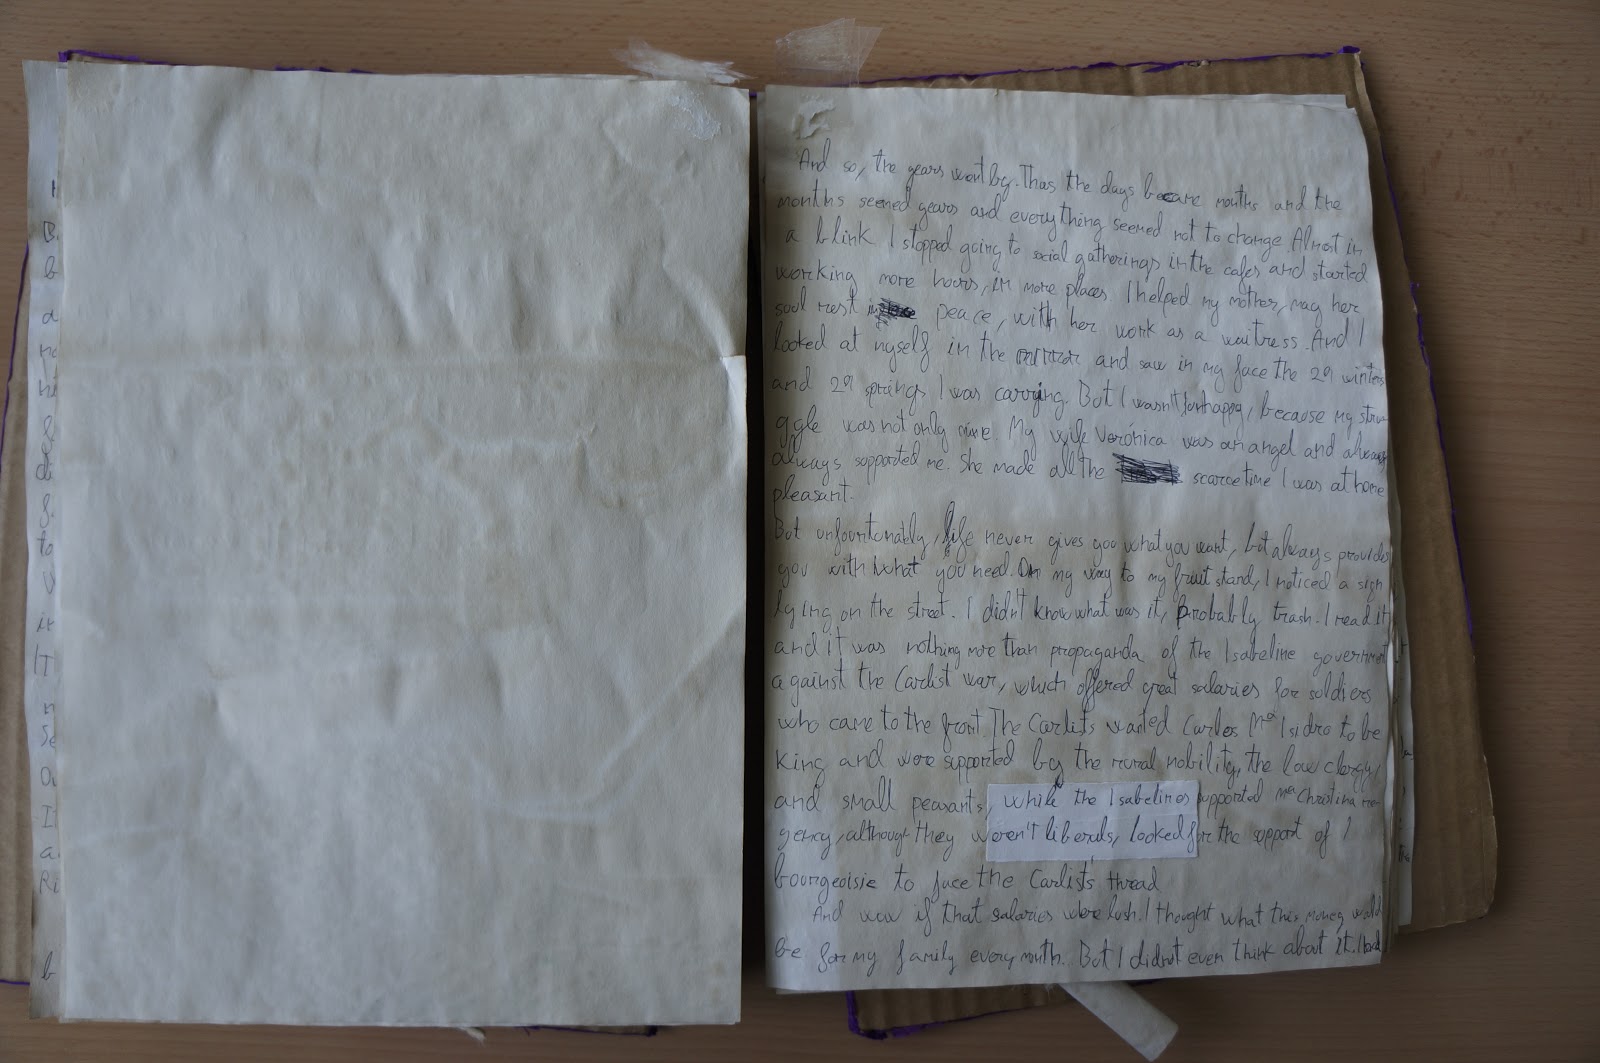 And so, the years went by. Thus the days became months and the
months seemed years and everything seemed not to change. Almost in
a blink I stopped going to social gatherings in the cafes and started
working more hours, in more places. I helped my mother, may her
soul rest in peace, with her work as a waitress. And I
looked at myself in the mirror and saw in my face the 29 winters
and 29 springs I was carrying. But I wasn't unhappy, because my stru-
ggle was not only mine. My wife Verónica was an angel and always
always supported me. She made all the scarce time I was at home
pleasant.
But unfortunately, life never gives you what you want, but always provides
you with what you need. On my way to my fruit stand, I noticed a sign
lying on the street. I didn't know what was it, probably trash. I read it
and it was nothing more than propaganda of the Isabeline government
against the Carlist war, which offered great salaries for soldiers
who came to the front. The Carlists wanted Carlos Mª Isidro to be
king and were supported by the rural nobility, the low clergy,
and small peasants, while the Isabelines supported Mª Christina re-
gency, although they weren't liberals, looked for the support of
bourgeoisie to face the Carlists thread
And wow if that salaries were lush. I thought what this money would
be for my family every month. But I didnt even think about it. I had